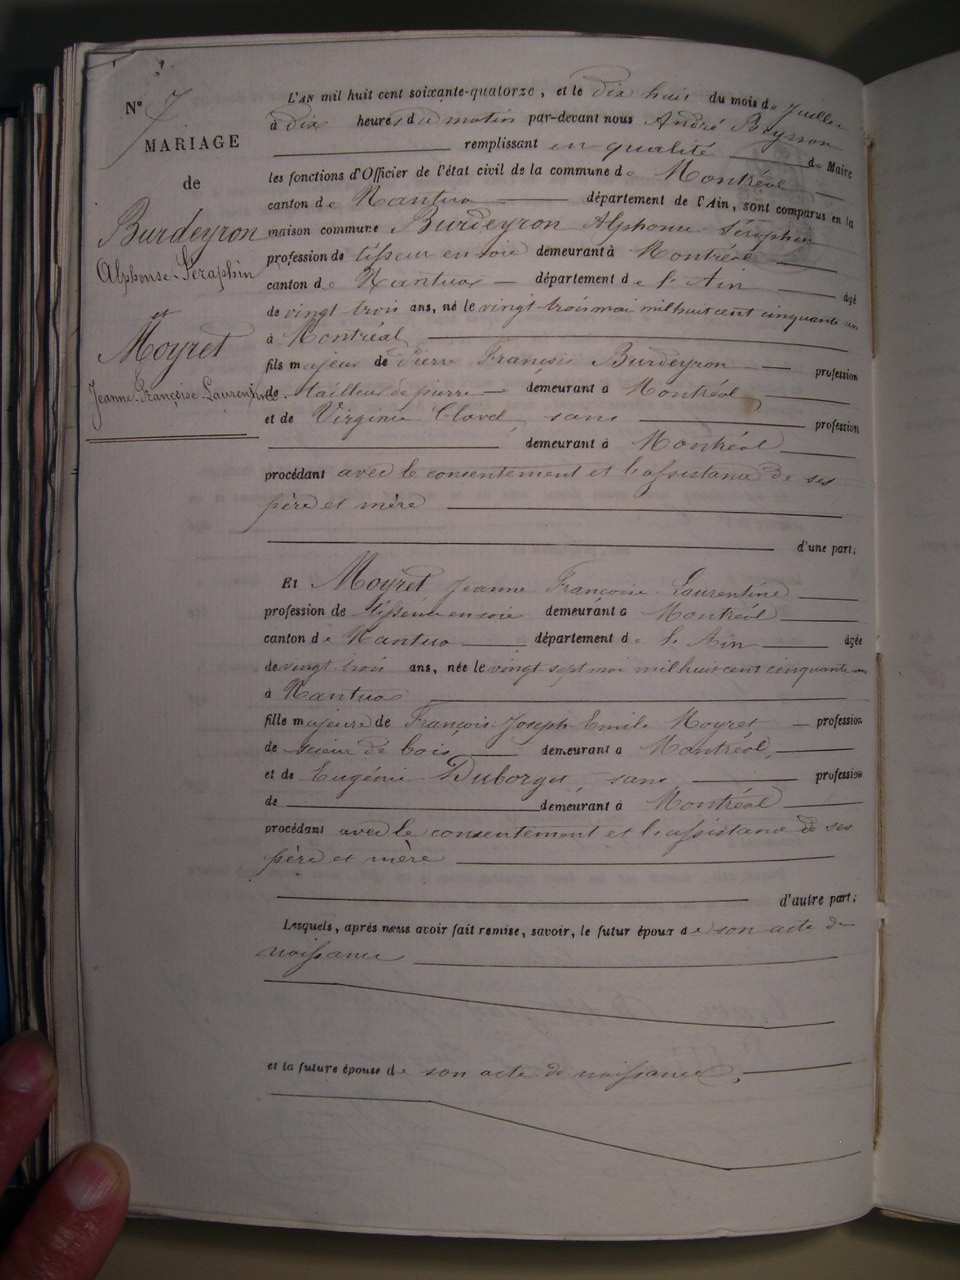 N° 7
MARIAGE
de
Burdeyron
Alphonse-Séraphin
et
Moyret
Jeanne-Françoise-Laurentine
L'AN mil huit cent soixante-quatorze, et le dix huit du mois de Juillet
à dix heures du matin par-devant nous André
remplissant en qualité de Maire
les fonctions d'Officier de l'état civil de la commune de Montréal
canton de Nantua département de l'Ain, sont comparus en la
maison commune Burdeyron Alphonse Séraphin
profession de tisseur en soie demeurant à Montréal
canton de Nantua département de l'Ain âgé
de vingt trois ans, né le vingt trois mai mil huit cent cinquante un
à Montréal
fils majeur de Pierre François Burdeyron profession
de tailleur de pierre demeurant à Montréal
et de Virginie Clavel, sans profession
demeurant à Montréal
procédant avec le consentement et l'assistance de ses
père et mère
d'une part;
Et Moyret Jeanne Françoise Laurentine
profession de tisseuse en soie demeurant à Montréal
canton de Nantua département de l'Ain âgée
de vingt trois ans, née le vingt sept mai mil huit cent cinquante un
à Nantua
fille majeure de François Joseph Emile Moyret profession
de scieur de bois demeurant à Montréal,
et de Eugénie Duborget, sans profession
de demeurant à Montréal
procédant avec le consentement et l'assistance de ses
père et mère
d'autre part;
Lesquels, après nous avoir fait remise, savoir, le futur époux de son acte de
naissance
et la future épouse de son acte de naissance,